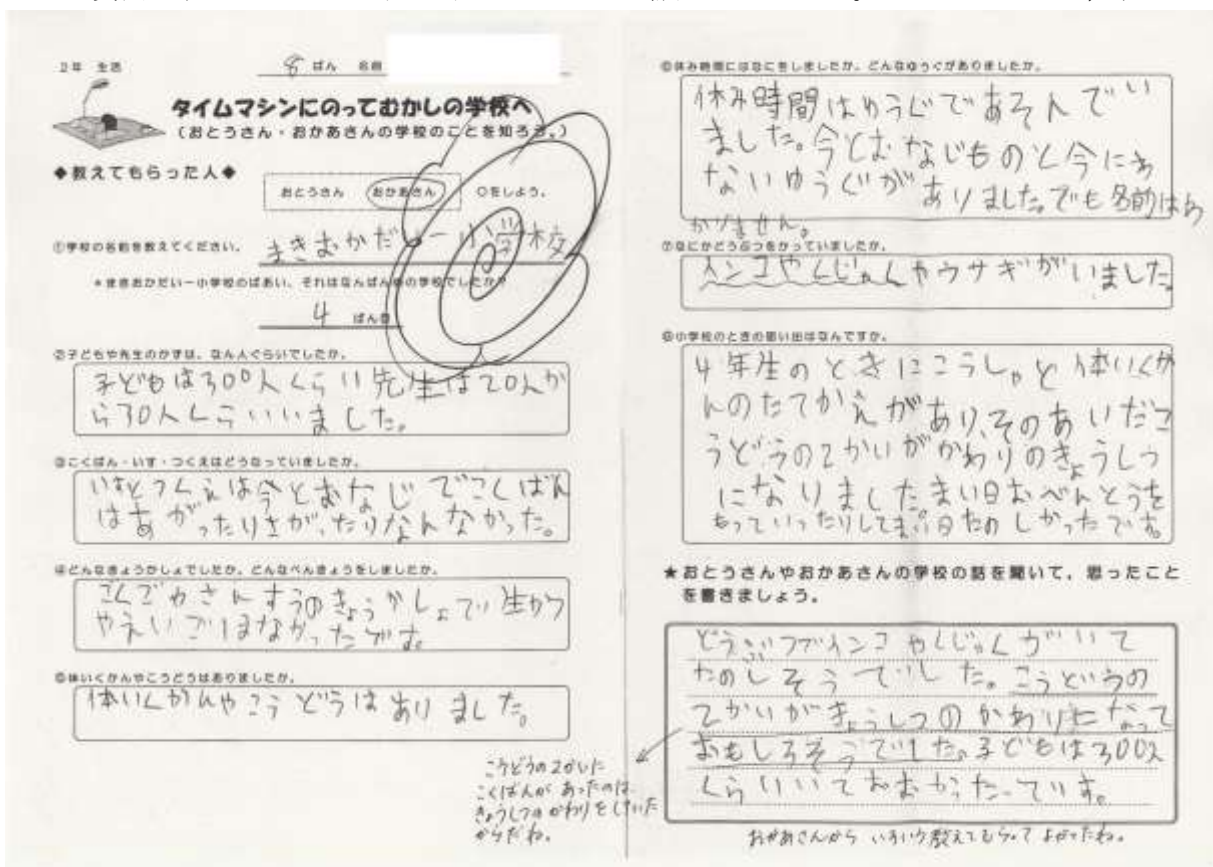 2年 生活
8 ばん 名前
タイムマシンにのってむかしの学校へ
(おとうさん・おかあさんの学校のことを知ろう。)
◆教えてもらった人◆
おとうさん おかあさん ○をしよう。
①学校の名前を教えてください。 まきおかだい一小学校
*まきおかだい一小学校のばあい、それはなんばんめの学校でしたか。
4 ばん目
②子どもや先生のかずは、なん人ぐらいでしたか。
子どもは300人くらい先生は20人か
ら30人くらいいました。
③こくばん・いす・つくえはどうなっていましたか。
いすとつくえは今とおなじでこくばん
はあがったりさがったりなんなかった。
④どんなきょうかしょでしたか。どんなべんきょうをしましたか。
こくごやさんすうのきょうかしょで、生かつ
やえいごはなかったです。
⑤体いくかんやこうどうはありましたか。
体いくかんやこうどうはありました。
こうどうの2かいに
こくばんがあったのは
きょうしつのかわりをしていた
からだね。
⑥休み時間にはなにをしましたか。どんなゆうぐがありましたか。
休み時間はゆうぐであそんでい
ました。今とおなじものと今にわ
ないゆうぐがありました。でも名前はわ
かりません。
⑦なにかどうぶつをかっていましたか。
インコやくじゃくやウサギがいました
⑧小学校のときの思い出はなんですか。
4年生のときにこうしゃと体いくか
んのたてかえがあり、そのあいだこ
うどうの2かいがかわりのきょうしつ
になりました。まい日おべんとうを
もっていったりしてまい日たのしかったです。
★おとうさんやおかあさんの学校の話を聞いて、思ったこと
を書きましょう。
どうぶつがインコやくじゃくがいて
たのしそうでした。こうどうの
2かいがきょうしつのかわりになって
おもしろそうでした。子どもは300人
くらいいておおかったです。
おかあさんから いろいろ教えてもらって よかったね。